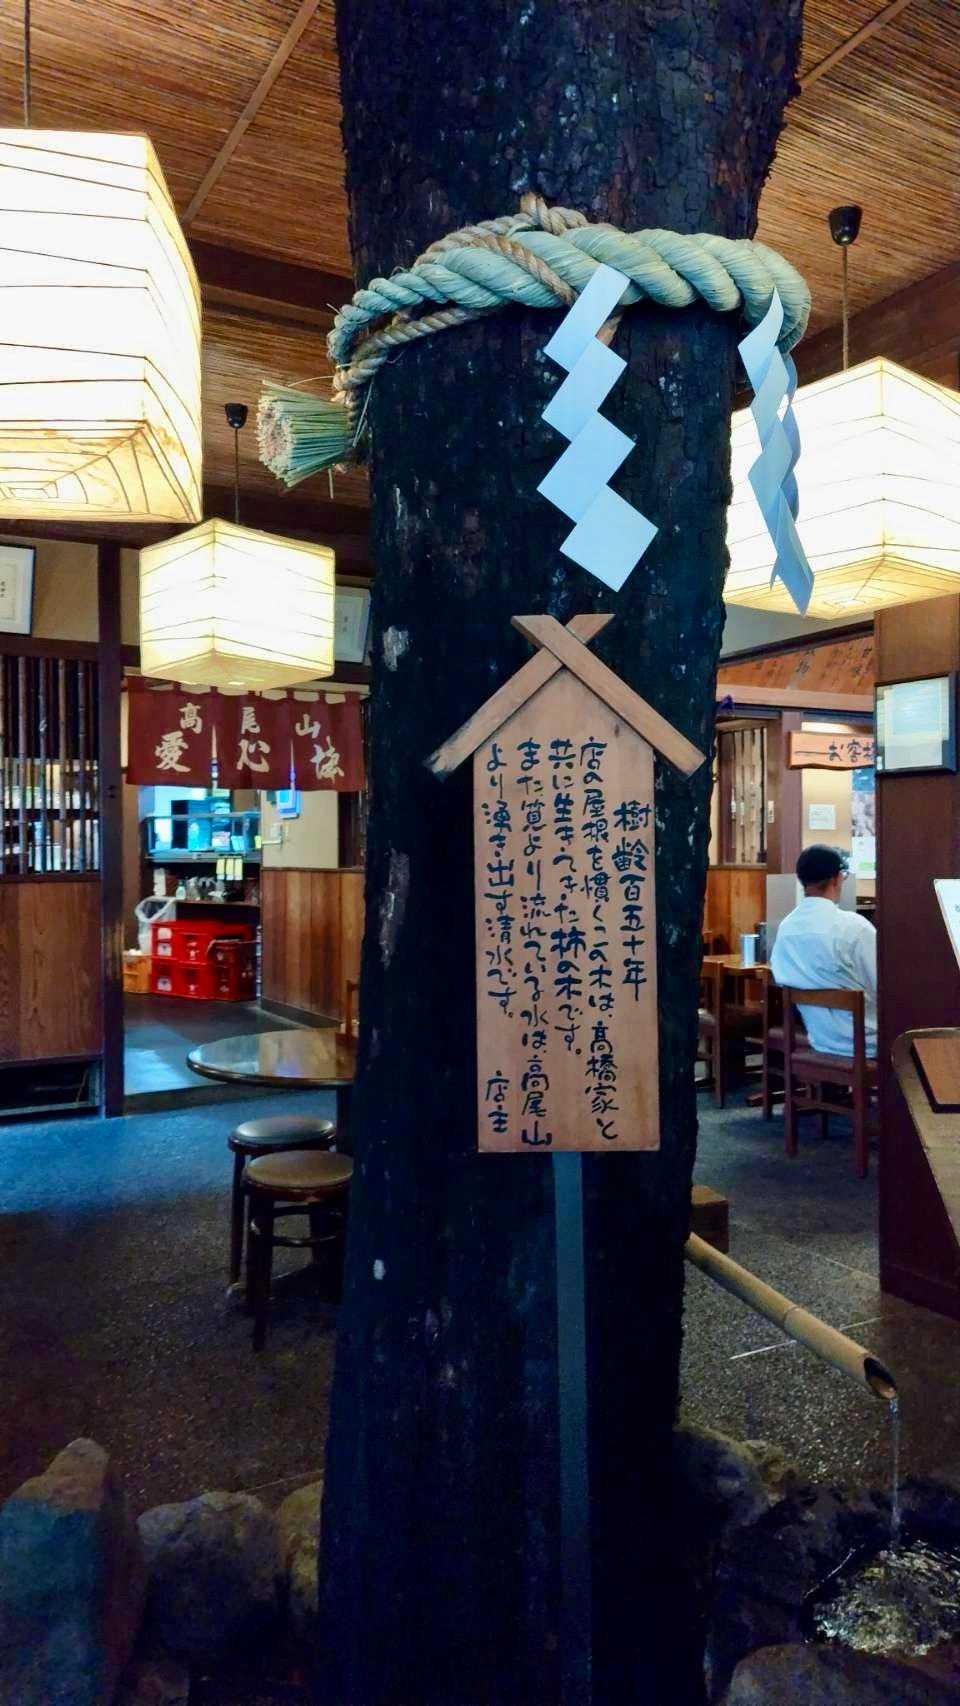 樹齢百五十年
店の屋根を慣くこの木は、高橋家と
共に生きてきた柿の木です。
また筧より流れている水は、高尾山
より湧き出す清水です。
店主
高尾山
愛心
お客様